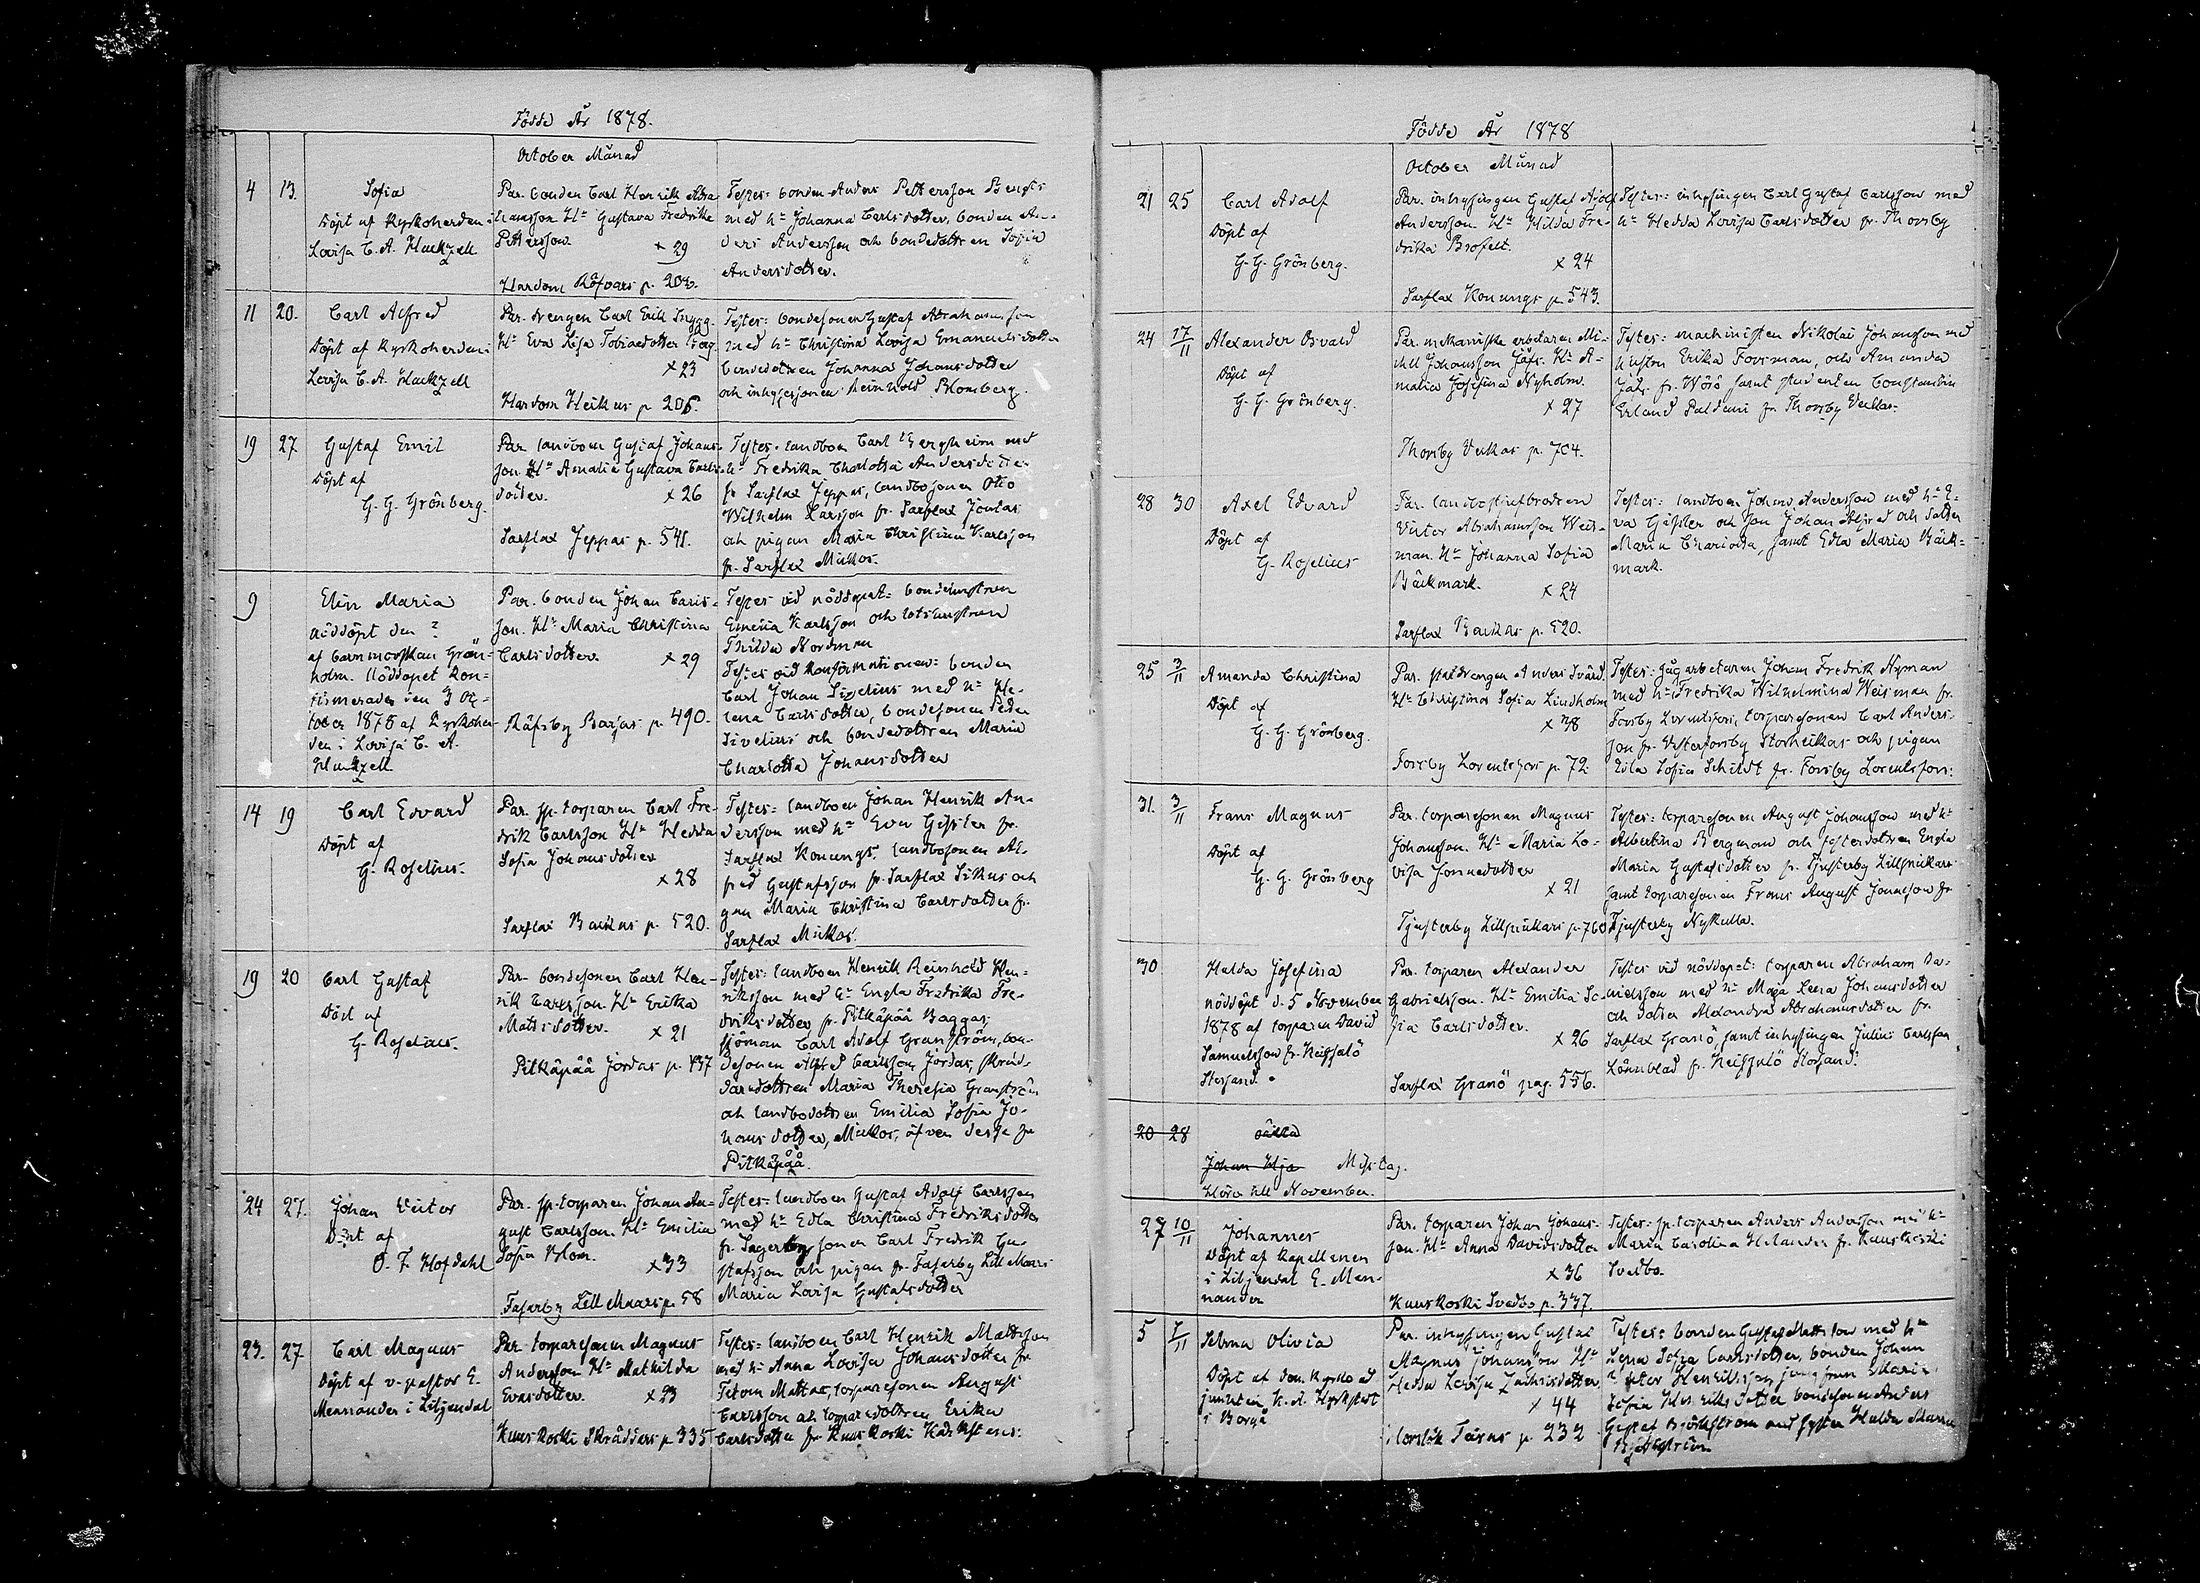 Födde År 1878.
October Månad
4 13. Sofia
Döpt af Kyrkoherden i
Lovisa C. A. Hackzell
Par. bonden Carl Henrik Abra
hamsson H: Gustava Fredrika
Pettersson
× 29
Hardom
Testes: bonden Anders Pettersson Bengts
med h: Johanna Carlsdotter, bonden An-
ders Andersson och bondedottren Sofia
Andersdotter.
11 20. Carl Alfred
Döpt af Kyrkoherden i
Lovisa C. A. Hackzell
Par. drengen Carl Erik
H: Eva Lisa Tobiasdotter
× 23
Hardom Heikus p 205.
Testes: bondesonen Gustaf Abrahamsson
med h: Christina Lovisa Emanuelsdotter
bondedottren Johanna Johansdotter
och inhysesonen Reinhold Blomberg.
19 27 Gustaf Emil
Döpt af
G. G. Grönberg.
Par landboen Gustaf Johans-
son H: Amalia Gustava Carls-
dotter.
× 26
Sarflax Jeppas p. 541.
Testes: landboen Carl Bergheim med
h: Fredrika Charlotta Andersdotter
fr Sarflax Jeppas, landbosonen Otto
Wilhelm Larsson fr. Sarflax Jontas
och pigan Maria Christina Karlsson
fr. Sarflax Mickos.
9 Elin Maria
nöddöpt den ?
af barnmorskan Grön-
holm. Nöddopet kon-
firmerades den 3 Oc-
tober 1878 af Kyrkoher-
den i Lovisa C. A.
Hackzell
Par. bonden Johan Carls-
son. H: Maria Christina
Carlsdotter.
× 29
Räfsby Barsas p. 490.
Testes vid nöddopet: bondehustrun
Emelia Karlsson och lotshustrun
Thilda Nordman
Testes vid konfirmationen: bonden
Carl Johan Sivelius med h: He-
lena Carlsdotter, bondesonen Peter
Sivelius och bondedottren Maria
Charlotta Johansdotter
14 19 Carl Edvard
Döpt af
G. Roselius.
Par. sp. torparen Carl Fre-
drik Carlsson H: Hedda
Sofia Johansdotter
× 28
Sarflax Backas p. 520.
Testes: landboen Johan Henrik An-
dersson med h: Eva Gissler fr.
Sarflax Konungs, landbosonen Al-
fred Gustafsson fr. Sarflax Sikus och
gan Maria Christina Carlsdotter fr.
Sarflax Mickos.
19 20 Carl Gustaf
Döpt af
G. Roselius.
Par. bondesonen Carl Hen-
rik Carlsson. H: Erika
Matsdotter.
× 21
Pitkäpää Jordas p. 437
Testes: landboen Henrik Reinhold Hen-
riksson med h: Engla Fredrika Fre-
driksdotter fr. Pitkäpää Baggas,
sjöman Carl Adolf Granström, bon-
desonen Alfred Carlsson Jordas, skräd-
daredottren Maria Theresia Granström
och landbodottren Emilia Sofia Jo-
hansdotter, Mickos, äfven desse fr
Pitkäpää.
24 27. Johan Victor
Döpt af
O. F. Hofdahl
Par. sp. torparen Johan Au-
gust Carlsson. H: Emilia
Sofia Blom.
× 33
Fasarby Lill Maars p. 58
Testes: landboen Gustaf Adolf Carlsson
med h: Edla Christina Fredriksdotter
fr. sonen Carl Fredrik Gu-
stafsson och pigan fr. Fasarby Lill Maars
Maria Lovisa Gustafsdotter
23. 27 Carl Magnus
Döpt af v. pastor E.
Mennander i Liljendal
Par. torparesonen Magnus
Andersson H: Mathilda
Evasdotter.
× 23
Kuuskoski Skrädders p 335
Testes: landboen Carl Henrik Mattsson
med h: Anna Lovisa Johansdotter fr
Tetom Mattas, torparesonen August
Carlsson och torparedottren Erika
Carlsdotter fr Kuuskoski
Födde År 1878
October Månad
21 25 Carl Adolf
Döpt af
G. G. Grönberg.
Par. inhysingen Gustaf Adolf
Andersson H: Hilda Fre-
drika Brofelt.
× 24
Sarflax Konungs p. 543.
Testes: inhysingen Carl Gustaf Carlsson med
h: Hedda Lovisa Carlsdotter fr. Thorsby
24 17/11 Alexander Osvald
Döpt af
G. G. Grönberg.
Par. mekaniske arbetaren Mi-
chel Johansson Jäfs. H: A-
malia Josefina Nyholm.
× 27
Thorsby Veckas p. 704.
Testes: machinisten Nikolai Johansson med
hustru Erika Forsman, och Amanda
Jäfs fr. Wörö samt studenten Constantin
Erland Paldani fr. Thorsby Veckas.
28 30 Axel Edvard
Döpt af
G. Roselius
Par. landbostjufbrodren
Victor Abrahamsson Weis-
man. H: Johanna Sofia
Bäckmark.
× 24
Sarflax Backas p. 520.
Testes: landboen Johan Andersson med h: E-
va Gissler och son Johan Alfred och dotter
Maria Charlotta, samt Edla Maria Bäck-
mark.
25 3/11 Amanda Christina
Döpt af
G. G. Grönberg.
Par. stalldrengen Anders Svärd.
H: Christina Sofia Lindholm
× 38
Forsby Lorentsfors p. 72
Testes: sågarbetaren Johan Fredrik Nyman
med h: Fredrika Wilhelmina Weisman fr.
Forsby Lorentsfors, torparesonen Carl Anders-
son fr. Vesterforsby Storheikas och pigan
Edla Sofia Schildt fr. Forsby Lorentsfors.
31. 3/11 Frans Magnus
Döpt af
G. G. Grönberg
Par. torparesonen Magnus
Johansson. H: Maria Lo-
visa Jonnedotter
× 21
Tjusterby Lillpickars p. 760
Testes: torparesonen August Johansson med h:
Albertina Bergman och systerdottren Engla
Maria Gustafsdotter fr. Tjusterby Lillpickars
samt torparesonen Frans August Jonasson fr
Tjusterby Nykulla.
30 Hulda Josefina
nöddöpt d. 5 November
1878 af torparen David
Samuelsson fr. Keipsalö
Storsand.
Par. torparen Alexander
Gabrielsson. H: Emilia So-
fia Carlsdotter.
× 26
Sarflax Granö pag. 556.
Testes vid nöddopet: torparen Abraham Da-
nielsson med h: Maja Lena Johansdotter
och dotter Alexandra Abrahamsdotter fr.
Sarflax Granö, samt inhysingen Julius Carlsson
Lönnblad fr. Keipsalö Storsand.
20 28 oäkta
Johan Misstag.
Höra till November.
27 10/11 Johannes
Döpt af kapellanen
i Liljendal E. Men-
nander
Par. torparen Johan Johans-
son. H: Anna Davidsdotter
× 36
Kuuskoski Svedbo p. 337.
Testes: sp. torparen Anders Andersson med h:
Maria Carolina Helander fr. Kuuskoski
Svedbo.
5 Selma Olivia
Döpt af domkyrko ad
junkten
i Borgå
Par. inhysingen Gustaf
Magnus Johansson H:
Hedda Lovisa Zachrisdotter
× 44
p. 232
Testes: bonden Gustaf Mattsson med h:
Lena Sofia Carlsdotter, bonden Johan
Henriksson jungfrun Maria
Sofia Henriksdotter bondesonen Anders
Gustaf Björkström med syster Hulda Maria
Björkström